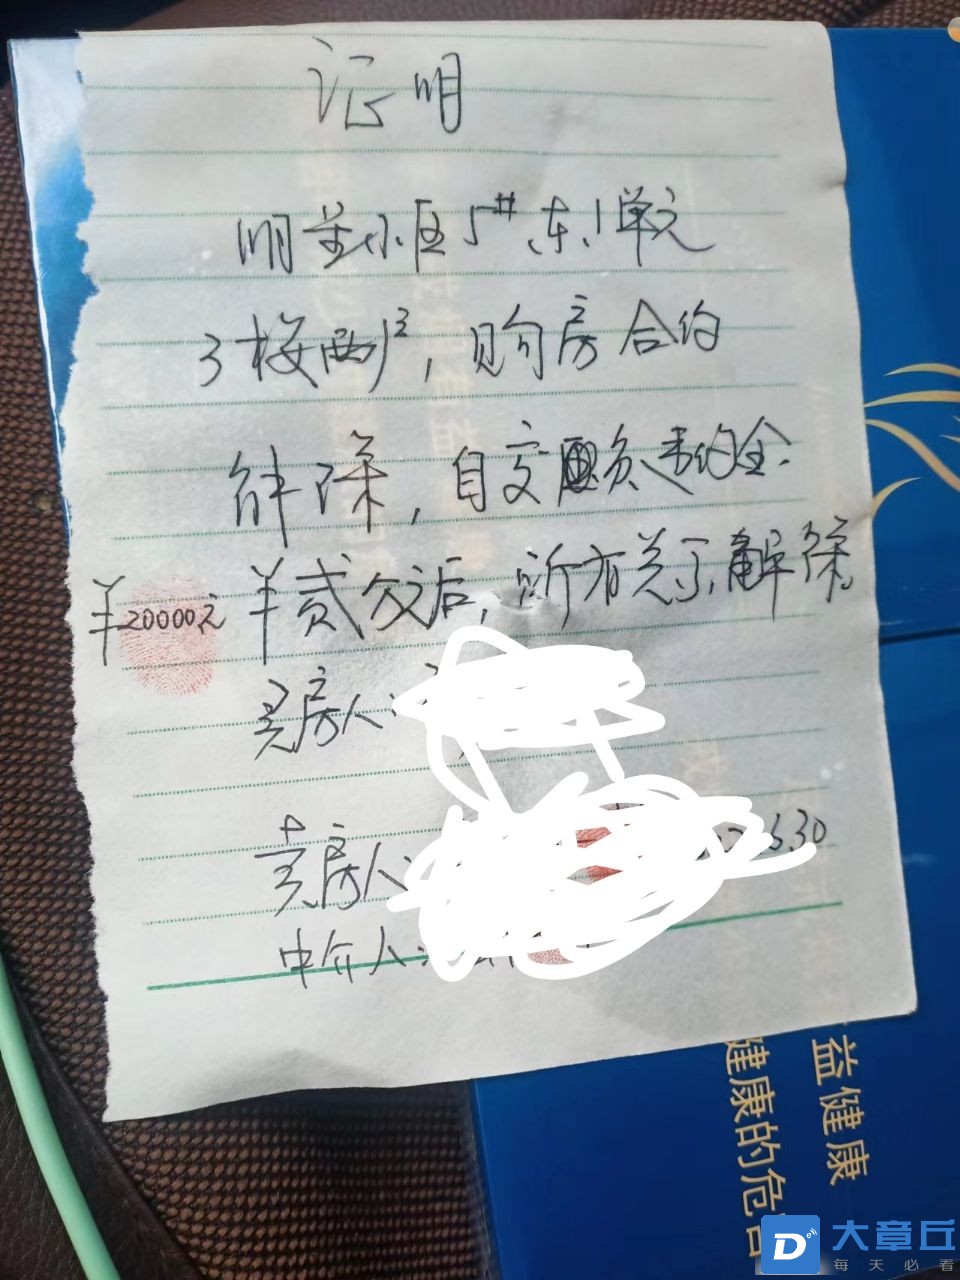 证明
明兰小区5#东1单元
3楼两户，购房合约
解除，自交付违约金
¥20000元 ¥贰万后，所有关系解除。
买房人：
卖房人： 6.30
中介人：
益健康
健康的危害
大章丘
每天必看